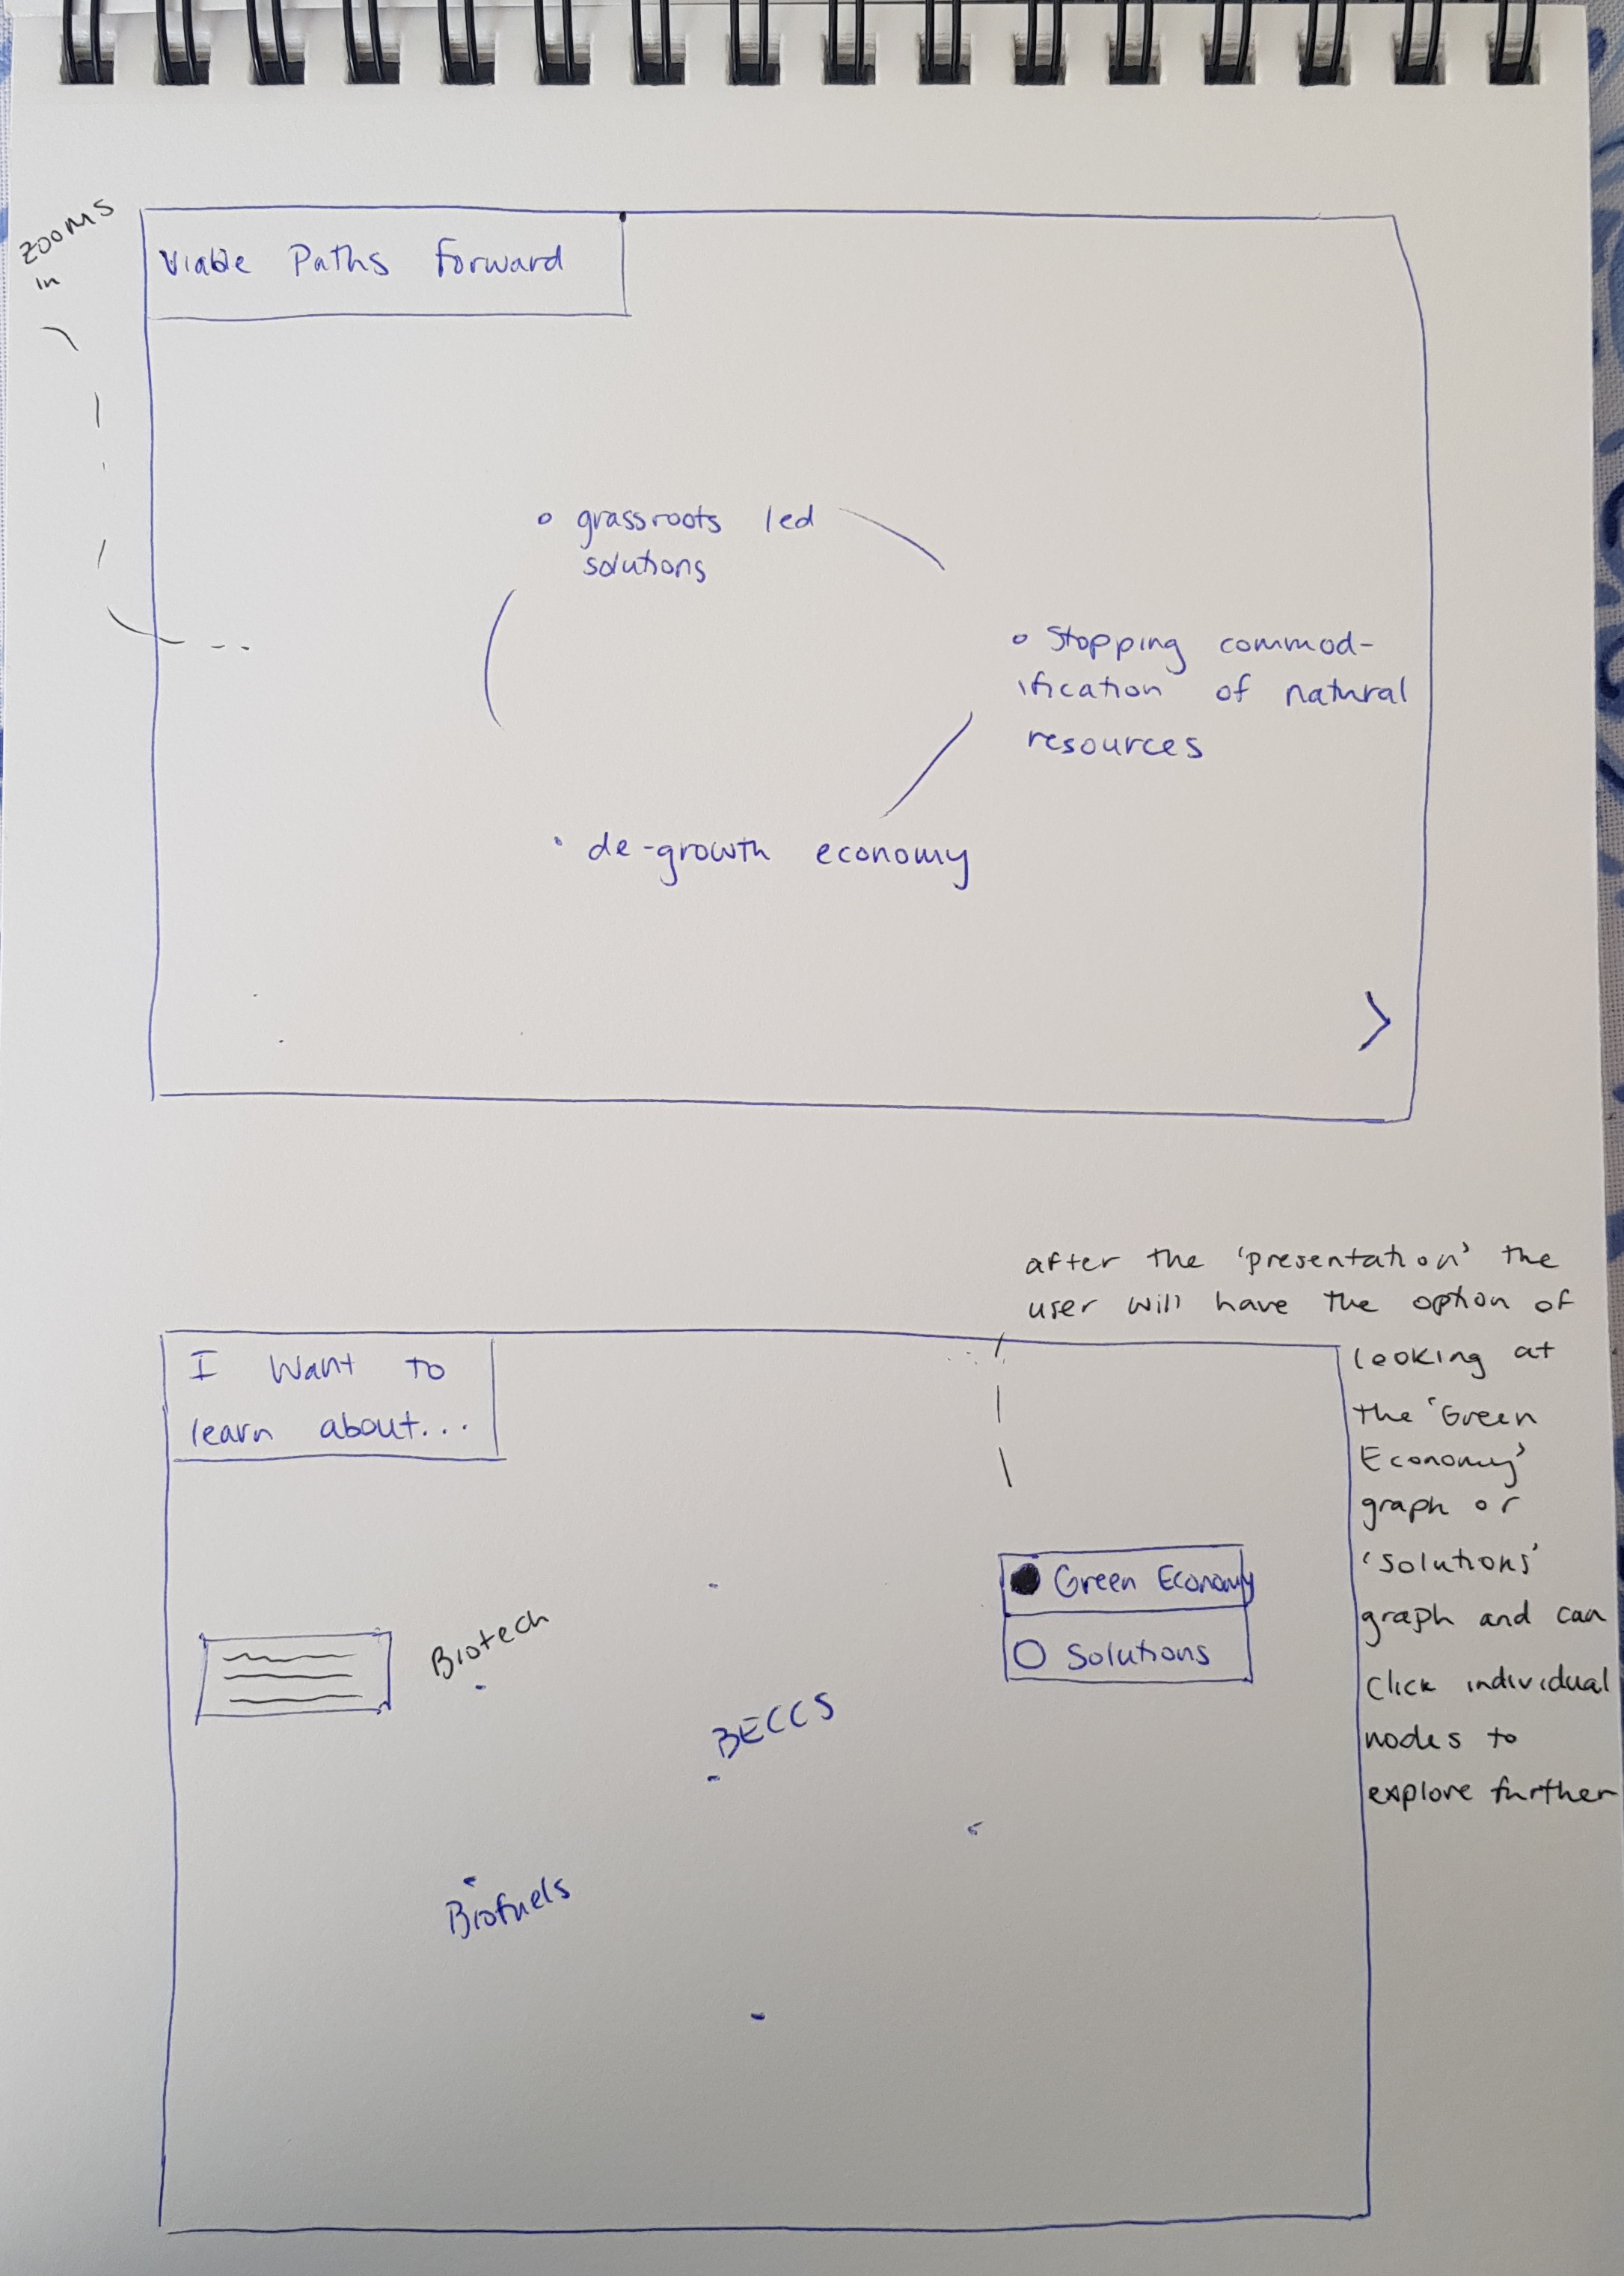 zooms
in
Viable Paths forward
grassroots led
solutions
Stopping commod-
ification of natural
resources
de-growth economy
after the 'presentation' the
user will have the option of
looking at
the 'Green
Economy'
graph or
'solutions'
graph and can
click individual
nodes to
explore further
I want to
learn about...
Green Economy
Solutions
Biotech
BECCS
Biofuels